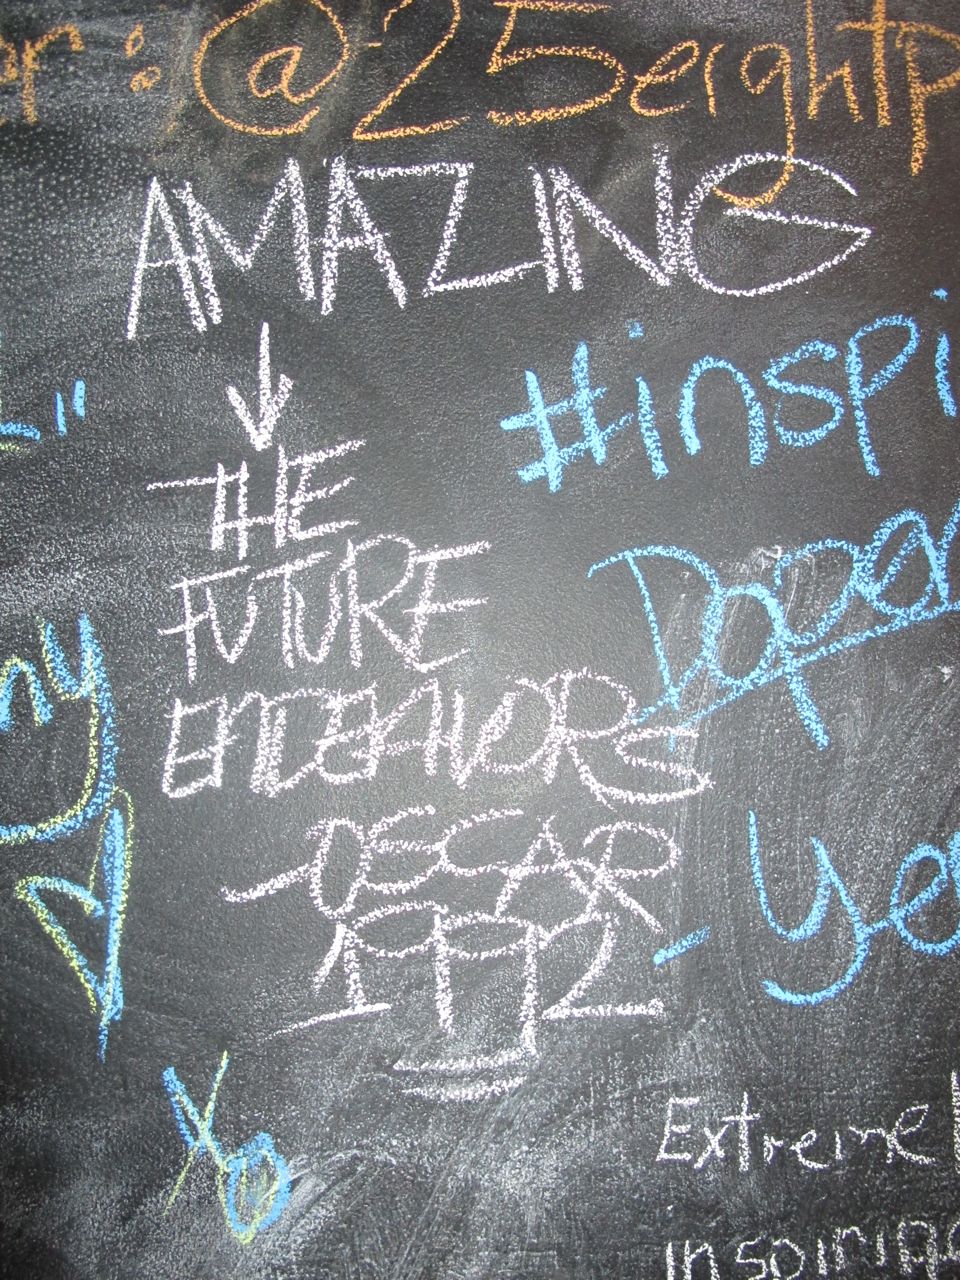 r: @25eightp
AMAZING
#inspi
THE
FUTURE
Dopa
ny
ENDEAVORS
OSCAR
- ye
1992
XO
Extreme
inspiring